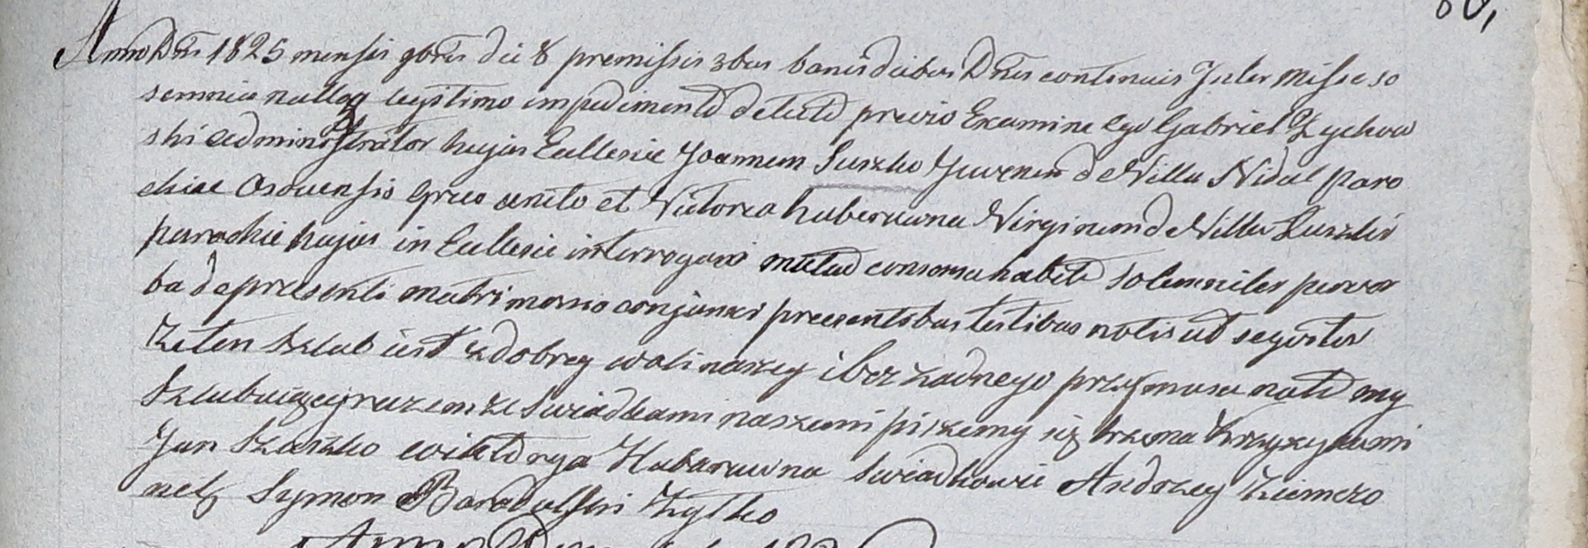 80,
Anno Dni 1825 mensis 9bris die 8 premissis 3bus banis diebus Dnis continuis Inter Misse so
lemnia nulloq legitimo impedimento detecto previo Examine ego Gabriel Zychow
ski administrator hujus Ecclesie Joannem Suszko Juvenem de Villa Nidal paro
chiae Osovensis greco unito et Victorea huberuwna Virginem de Villa Suszki
parachie hujus in Ecclesie interrogavi mutuo consensu habito solemniter per vor
ba de presenti matrimonio conjunxi presentibus testibus notis ut seqvitor
Ze ten szlub iest z dobrey woli naszey i bez zadnego przysmusu nato my
szlubuięcy razem ze swiadkami naszemi piszemy się trzema krzyzykami
Jan Szuszko wiktorya Hubaruwna swiadkowie Andrzey Ziemczo
nek Symon Zytko
Anno